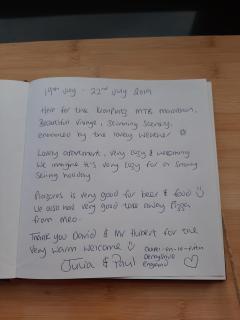 19th July - 22nd July 2019
Here for the MTB marathon.
Beautiful village, stunning scenery,
enhanced by the lovely weather
Lovely apartment, very cosy & welcoming
We imagine it's very cosy for a snowy
skiing holiday
is very good for beer & food
We also had very good take away pizza
from
Thank you David & Mr Hubert for the
very warm welcome
Julia & Paul
Chapel-en-le-Frith
Derbyshire
England